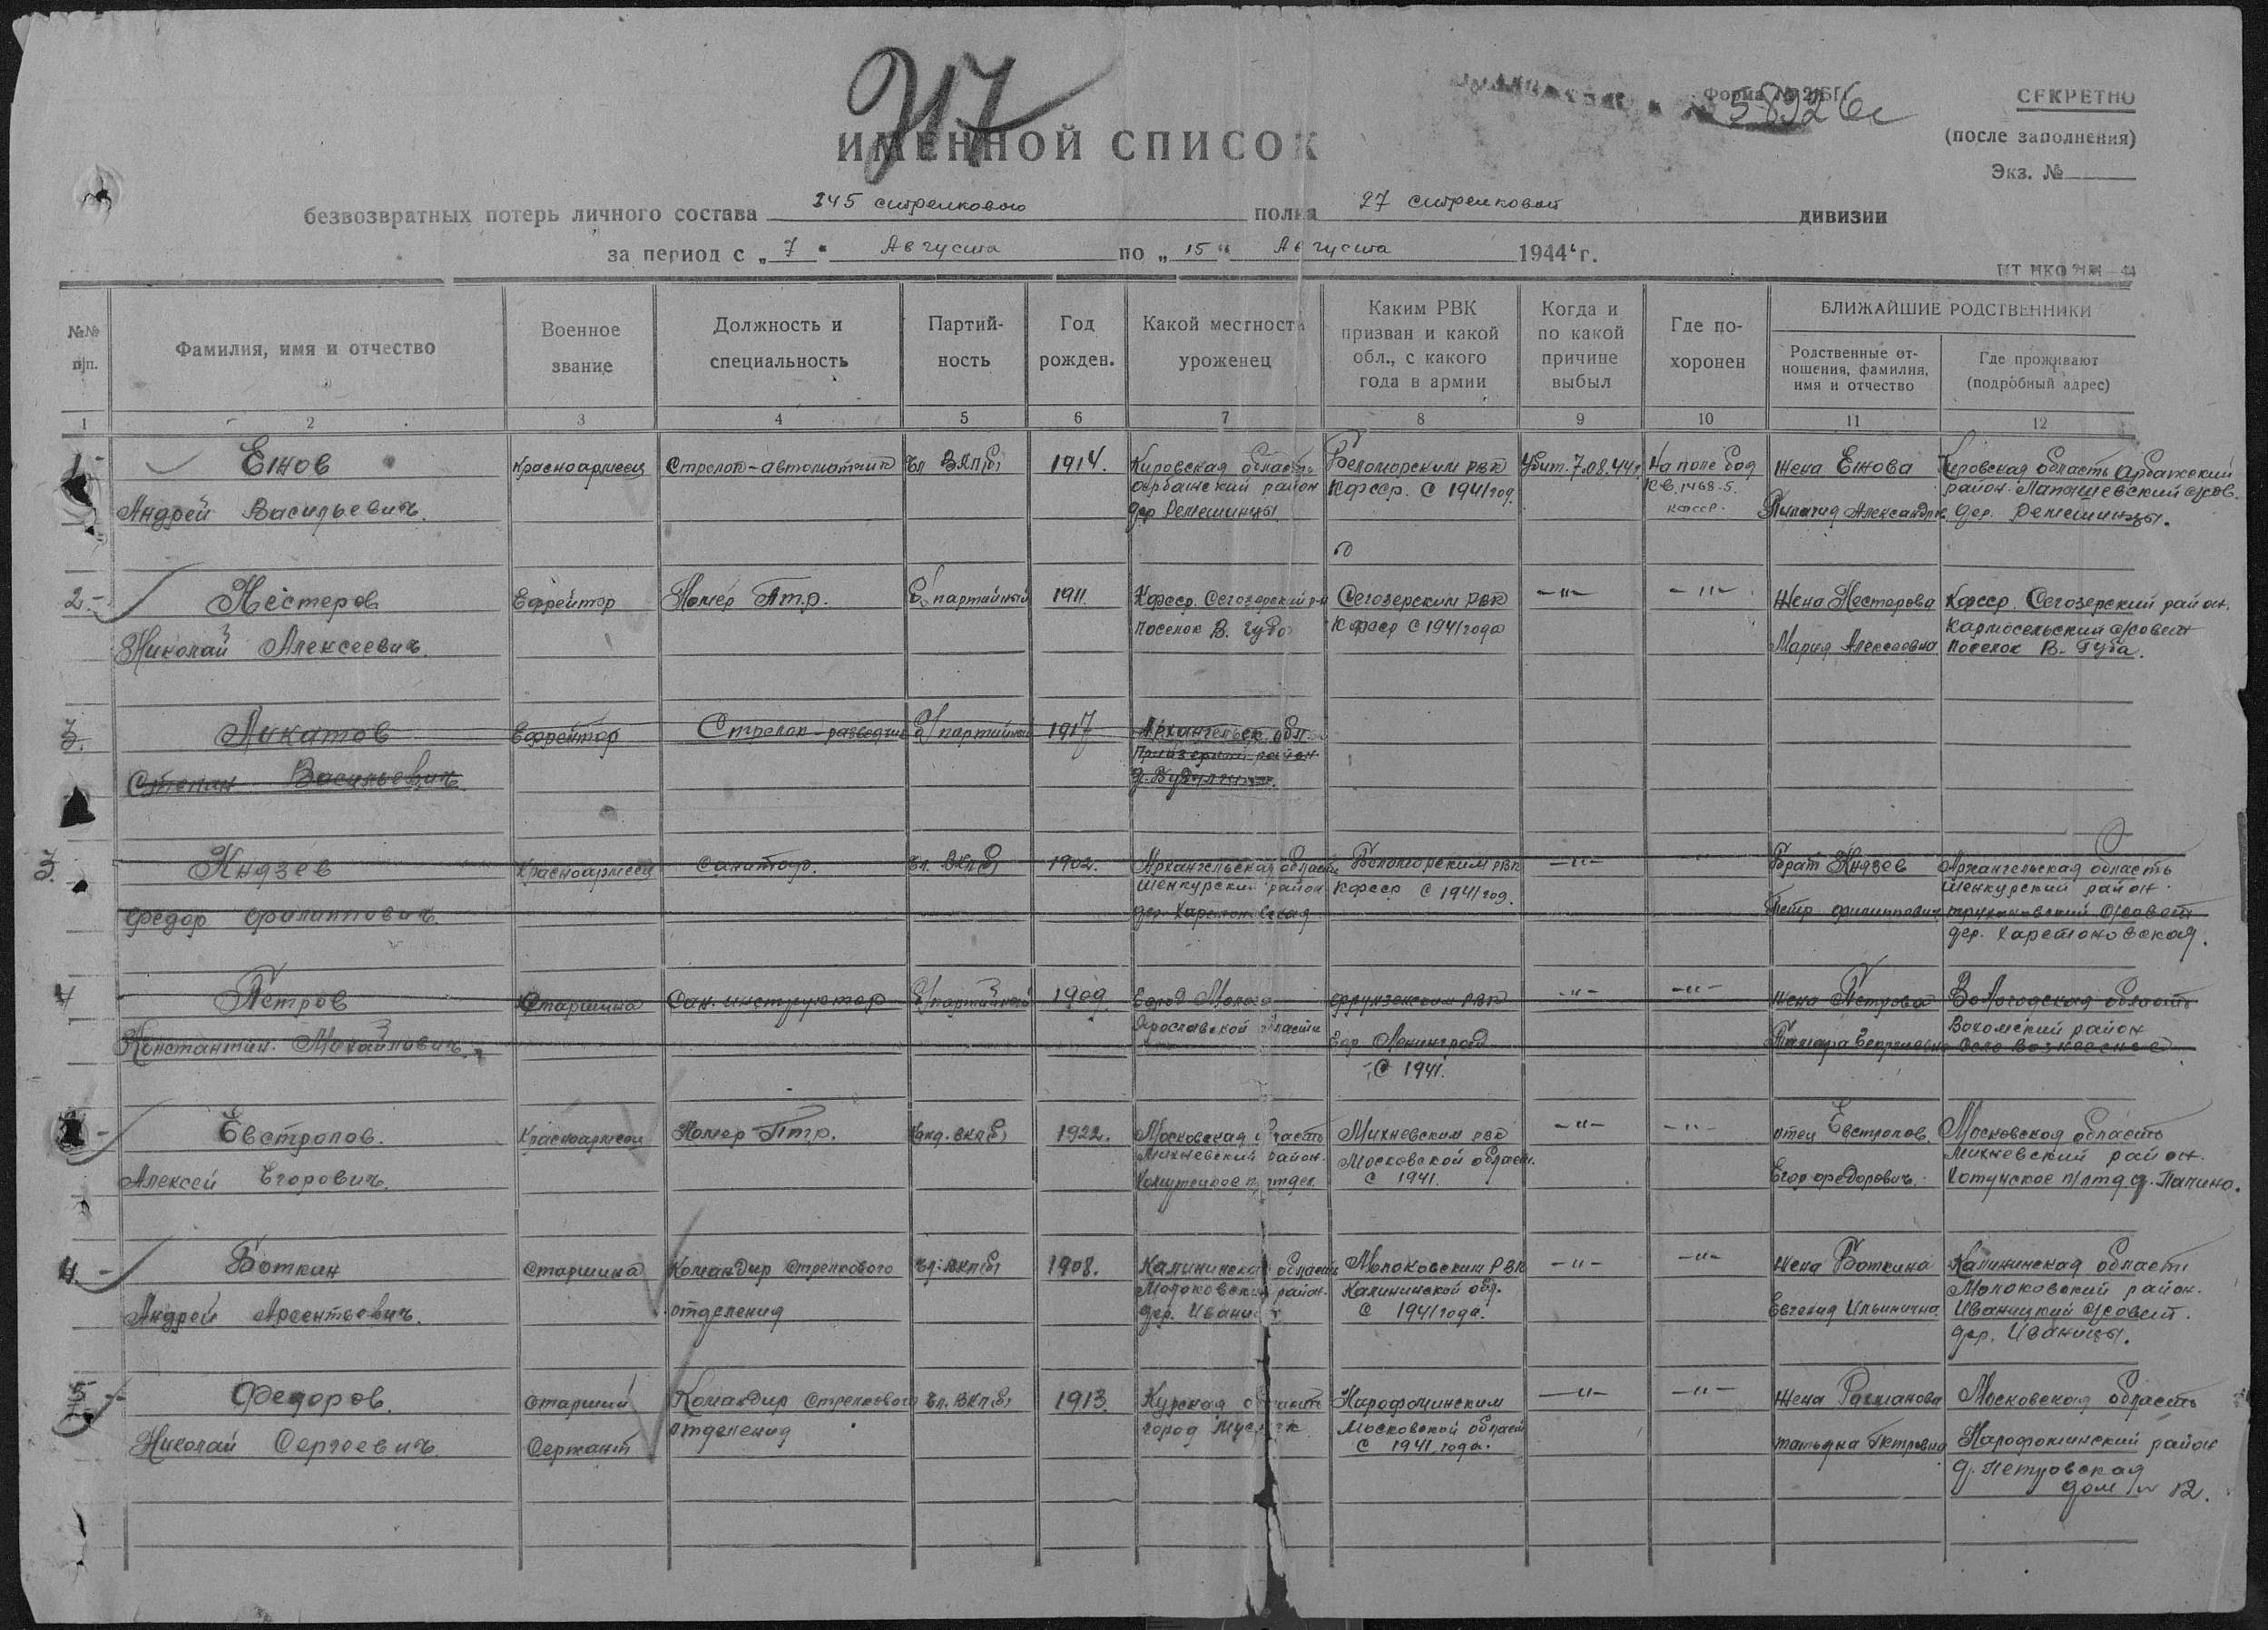 217
Форма № 2/БП
58926с
СЕКРЕТНО
(после заполнения)
Экз. №
ИМЕННОЙ СПИСОК
безвозвратных потерь личного состава 345 стрелкового полка 27 стрелковой дивизии
за период с „7" Августа по „15" Августа 1944 г.
№№ п/п.
Фамилия, имя и отчество
Военное звание
Должность и специальность
Партий-ность
Год рожден.
Какой местности уроженец
Каким РВК призван и какой обл., с какого года в армии
Когда и по какой причине выбыл
Где по-хоронен
БЛИЖАЙШИЕ РОДСТВЕННИКИ
Родственные от-ношения, фамилия, имя и отчество
Где проживают (подробный адрес)
1 2 3 4 5 6 7 8 9 10 11 12
1- Ежов Красноармеец Стрелок-автоматчик Чл ВКП(б) 1914. Кировская область Беломорским РВК Убит. 7.08.44г На поле боя Жена Ежова Кировская область Арбажский
Арбажский район КФССР. С 1941 год. Кв. 1468-5. район
Андрей Васильевич. дер КФССР. Александр. дер.
2- Нестеров Ефрейтор Номер Птр. б/партийный 1911. КФССР. Сегозерский р-н Сегозерским РВК -"- -"- Жена Нестерова КФССР. Сегозерский район.
поселок В. Губа КФССР С 1941 года Кармосельский с/совет
Николай Алексеевич. Мария Алексеевна поселок В. Губа.
3. Ликатов Ефрейтор Стрелок-разведчик б/партийный 1917 Архангельск. обл.
район
Степан Васильевич.
3. Князев Красноармеец Санитар. Чл. ВКП(б) 1902. Архангельская область Беломорским РВК -"- " Брат Князев Архангельская область
Шенкурский район КФССР С 1941 год. Шенкурский район.
Федор Филиппович. дер. Петр Филиппович с/совет
дер. Харетоновская.
4 Петров Старшина Сан. инструктор б/партийный 1909. Город Молога Фрунзенским РВК -"- -"- Жена Петрова Вологодская область
Ярославской области Вохомский район
Константин Михайлович. гор. Ленинград Тамара село
С 1941.
3- Евстропов. Красноармеец Номер Птр. Канд. ВКП(б) 1922. Московская область Михневским РВК -"- -"- отец Евстропов Московская область
Михневский район. Московской област. Михневский район.
Алексей Егорович. С 1941. Егор Федорович. Хотунское п/отд д.
4.- Боткин Старшина Командир Стрелкового Чл. ВКП(б) 1908. Калининская область Молоковским РВК -"- -"- Жена Боткина Калининская область
Молоковский район. Калининской обл. Молоковский район.
Андрей Арсентьевич. отделения дер. С 1941 года. Евгения Ильинична Иваницкий с/совет.
дер. Иваницы.
5- Федоров. Старший Командир Стрелкового Чл. ВКП(б) 1913. Курская область Нарофоминским -"- -"- Жена Рахманова Московская область
отделения город Московской област
Николай Сергеевич Сержант С 1941 года. Татьяна Петровна Нарофоминский район
д. Петровская
дом № 12.